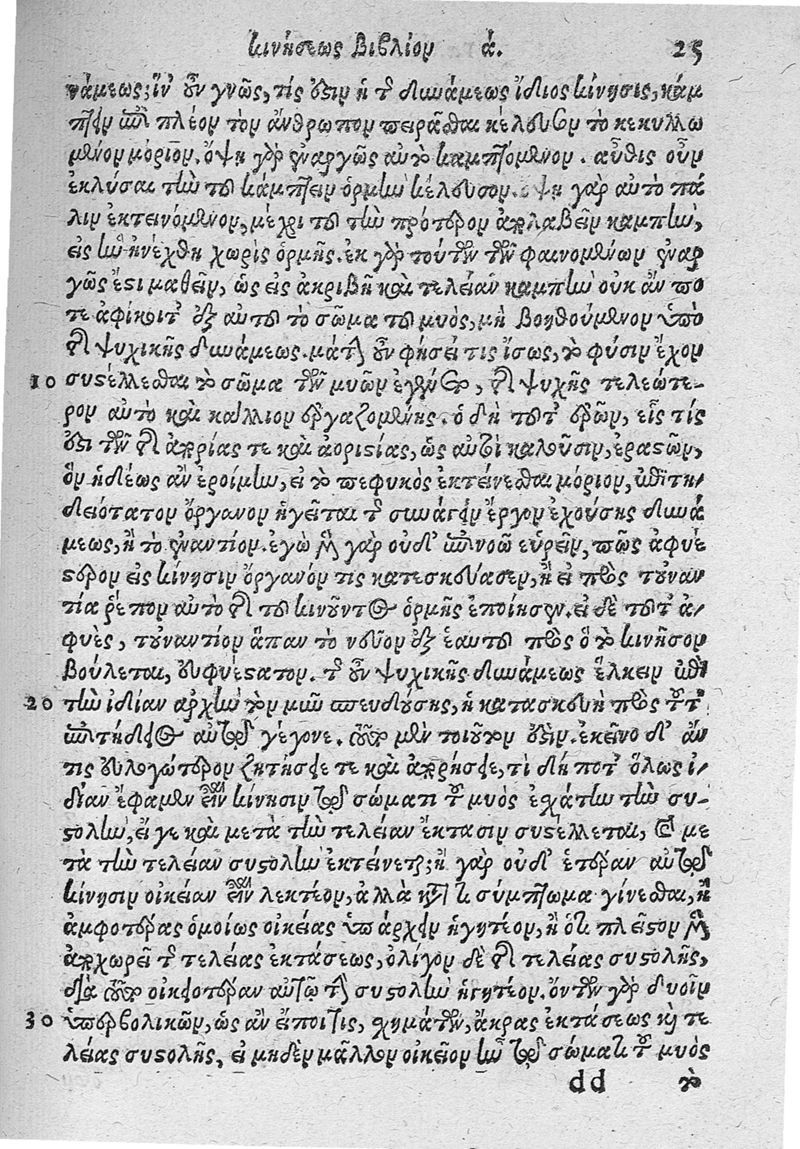 κινήσεως βιβλίον ά. 25
νάμεως; ἵν᾽ οὖν γνῶς, τίς ὅστιν ἡ τῆς δυνάμεως ἴδιος κίνησις, κάμ
πτειν ἐπὶ πλέον τὸν ἄνθρωπον πειρᾶσθαι κέλευσον τὸ κεκυλλω
μένον μόριον. ὄψη γὰρ ἐναργῶς αὐτὸ καμπτόμενον. αὖθις οὖν
ἐκλύσαι τὴν τοῦ κάμπτειν ὁρμὴν κέλευσον. ὄψη γὰρ αὐτὸ πά
λιν ἐκτεινόμενον, μέχρι τοῦ τὴν πρότερον ἀπολαβεῖν καμπὴν,
εἰς ἣν ἠνέχθη χωρὶς ὁρμῆς. ἐκ γὰρ τούτων τῶν φαινομένων ἐναρ
γῶς ἔστι μαθεῖν, ὡς εἰς ἀκριβῆ καὶ τελείαν καμπὴν οὐκ ἄν πο
τε ἀφίκοιτ᾽ ἐξ αὑτοῦ τὸ σῶμα τοῦ μυὸς, μὴ βοηθούμενον ὑπὸ
τῆς ψυχικῆς δυνάμεως. μάτην οὖν φήσει τις ἴσως, τὸ φύσιν ἔχον
10 συστέλλεσθαι τὸ σῶμα τῶν μυῶν ἐγένετο, τῆς ψυχῆς τελεώτε-
ρον αὐτὸ καὶ κάλλιον ἐργαζομένης. ὁ δὴ τοῦτ᾽ ἐρῶν, εἷς τίς
ὅστι τῶν τῆς ἀπορίας τε καὶ ἀοριστίας, ὡς αὐτοὶ καλοῦσιν, ἐραστῶν,
ὃν ἡδέως ἂν ἐροίμην, εἰ τὸ πεφυκὸς ἐκτείνεσθαι μόριον, ἐπιτη/
δειότατον ὄργανον ἡγεῖται τῆς συνάγειν ἔργον ἐχούσης δυνά
μεως, ἢ τὸ ἐναντίον. ἐγὼ μὲν γὰρ οὐδ᾽ ἐπινοῶ εὑρεῖν, πῶς ἀφυέ
στερον εἰς κίνησιν ὄργανόν τις κατεσκεύασεν, ἢ εἰ πρὸς τοὐναν
τία ῥέπον αὐτὸ τῆς τοῦ κινοῦντος ὁρμῆς ἐποίησεν. εἰ δὲ τοῦτ᾽ ἀ/
φυὲς, τοὐναντίον ἅπαν τὸ νεῦον ἐξ ἑαυτοῦ πρὸς ὃ τὸ κινῆσον
βούλεται, εὐφυέστατον. τῆς οὖν ψυχικῆς δυνάμεως ἕλκειν ἐπὶ
20 τὴν ἰδίαν ἀρχὴν τὸν μῦν σπευδούσης, ἡ κατασκευὴ πρὸς τοῦτ᾽
ἐπιτήδειος αὐτῷ γέγονε. τοῦτο μὲν τοιοῦτον ὅστιν. ἐκεῖνο δ᾽ ἄν
τις εὐλογώτερον ζητήσειέ τε καὶ ἀπορήσειε, τί δή ποτ᾽ ὅλως ἰ/
δίαν ἔφαμεν εἶναι κίνησιν τῷ σώματι τοῦ μυὸς ἐσχάτην τὴν συ-
στολὴν, εἴ γε καὶ μετὰ τὴν τελείαν ἔκτασιν συστέλλεται, καὶ με
τὰ τὴν τελείαν συστολὴν ἐκτείνεται; ἢ γὰρ οὐδ᾽ ἑτέραν αὐτῷ
κίνησιν οἰκείαν εἶναι λεκτέον, ἀλλὰ κατά τι σύμπτωμα γίνεσθαι, ἢ
ἀμφοτέρας ὁμοίως οἰκείας ὑπάρχειν ἡγητέον, ἢ ὅτι πλεῖστον μὲν
ἀποχωρεῖ τῆς τελείας ἐκτάσεως, ὀλίγον δὲ τῆς τελείας συστολῆς,
διὰ τοῦτο οἰκειοτέραν αὐτῷ τὴν συστολὴν ἡγητέον. ὄντων γὰρ δυοῖν
30 ὑπερβολικῶν, ὡς ἂν εἴποι τις, σχημάτων, ἄκρας ἐκτάσεως καὶ τε
λείας συστολῆς, εἰ μηδὲν μᾶλλον οἰκεῖον ἦν τῷ σώματι τοῦ μυὸς
dd τὸ